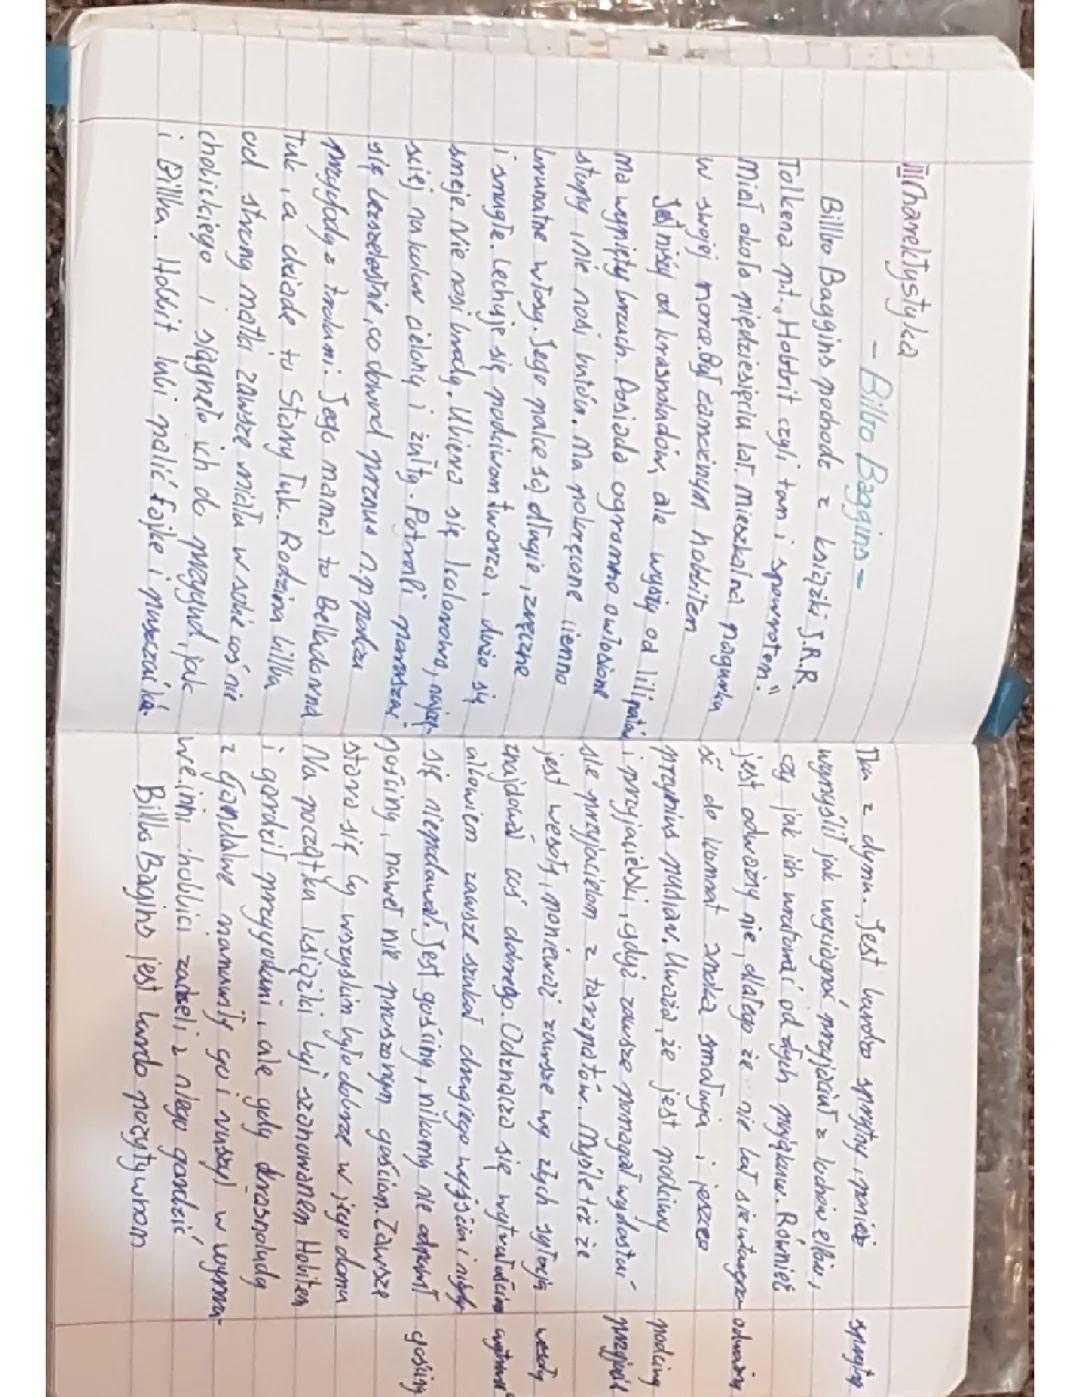 Charektystyka
- Bilbo Baggins -
Billbo Baggins pochodz z książki J.R.R.
Tolkena pt. „Hobbit czyli tam i spowrotem."
Miał około pięćdziesięciu lat mieszkał na pagurku
w swojej norce. Był zamożnym hobbitem
Jest niższy od krasnoludów, ale wyższy od liliputów
ma wypięty brzuch. Posiada ogromne owłosione
stopy, nie nosi butów. Ma pokręcone ciemno
brunatne włosy. Jego palce są długie, zręczne
i smagłe. Cechuje się poczciwom twarzą, dużo się
smeje. Nie nosi brody. Ubiera się kolorowo, najczę-
sciej na kolor zielony i żółty. Potrafi poruszać
się bezszelestnie, co dowód przenus n.p podczas
przyfody z trolami. Jego mama to Belladonna
Tuk, a dziade to Stary Tuk. Rodzina billba
od strony matki zawsze miała w sobie coś nie
hobickiego i siągneło ich do przygud, jak
i Billba. Hobbit lubi palić fajke i puszczać kó-
łka z dymu. Jest bardzo sprytny, ponieś
wymyślił jak wyciągnąć przyjaciuł z lochów elfów,
czy jak ich uratować od złych pająkuw. Rówmież
jest odważny nie, dlatego że nie bał sie
ść do komnat smoka smaluga i jeszcze
przynius puhar. Uważa, że jest poczciwy
i przyjacielski, gdyż zawsze pomagał wydostać
sie przyjacielom z tarapatów. Myśle też że
jest wesoły, ponieważ zawsze wy złych sytuacją
znajdował coś dobrego. Odznacza się wytrwałością
albowiem zawsze szukał drugiego wyjścia i nigdy
się niepoddawał. Jest gościny, nikomy nie odmawał
gościny, nawet nie proszonym gościom. Zawsze
stara się by wszyskim było dobrze w jego domu
Na początku książki był szanowanem Hobitem
i gardził przygodami, ale gdy krasnoludy
z Gandalwe namuwiły go i ruszył w wypra-
we, inni hobici zaczeli z niego gardzić
Billbo Bagins jest bardo pozytywnom
sprytny
odważny
poczciwy
wesoły
gościny